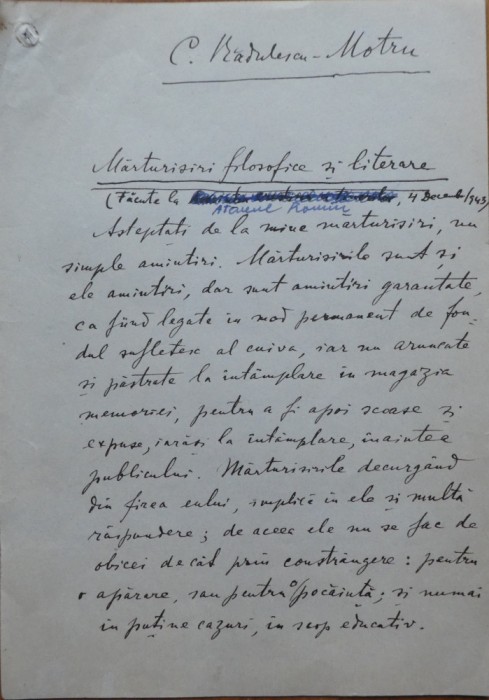 C. Rădulescu-Motru
Mărturisiri filosofice și literare
(Făcute la Ateneul Român, 4 Decemb/1943)
Așteptați de la mine mărturisiri, nu
simple amintiri. Mărturisirile sunt și
ele amintiri, dar sunt amintiri garantate,
ca fiind legate în mod permanent de fon-
dul sufletesc al cuiva, iar nu aruncate
și păstrate la întâmplare în magazia
memoriei, pentru a fi apoi scoase și
expuse, iarăși la întâmplare, înaintea
publicului. Mărturisirile decurgând
din firea eului, implică în ele și multă
răspundere; de aceea ele nu se fac de
obicei decât prin constrângere: pentru
apărare, sau pentru pocăință; și numai
în puține cazuri, în scop educativ.